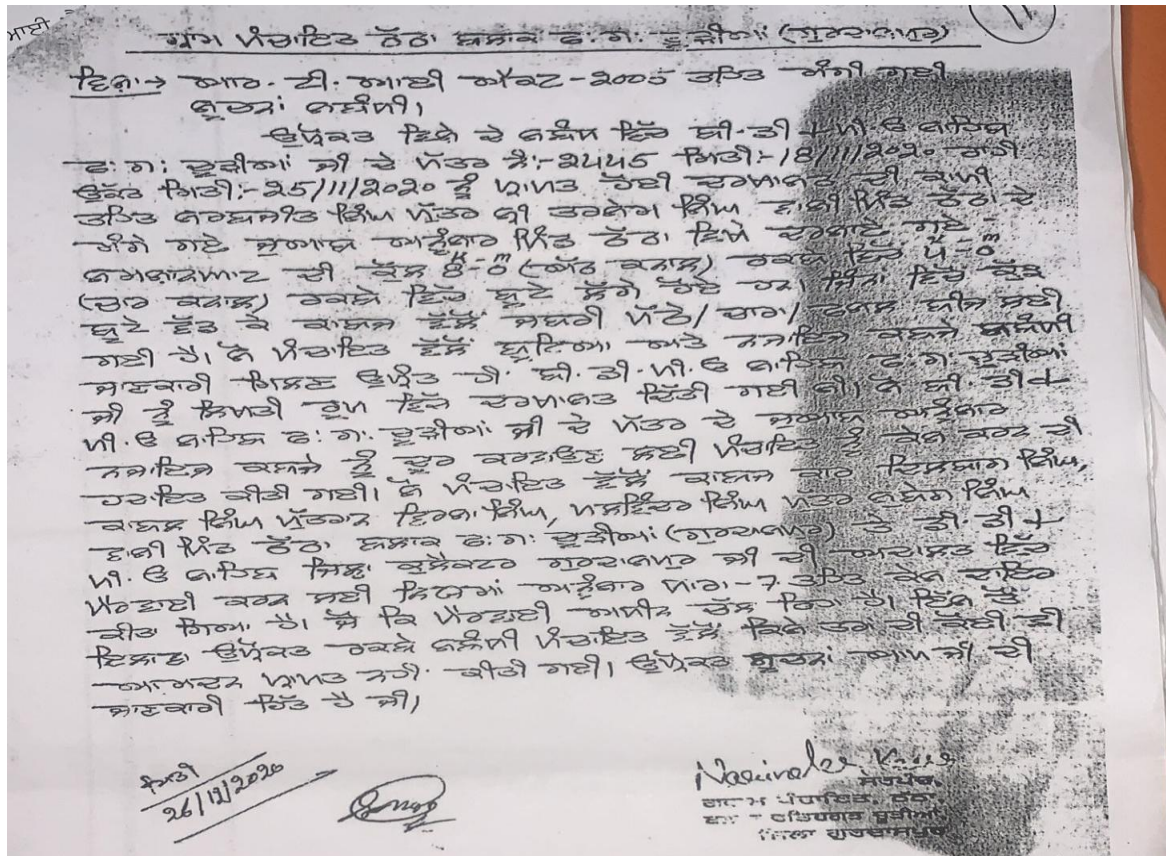 ਗ੍ਰਾਮ ਪੰਚਾਇਤ ਠੱਠਾ ਬਲਾਕ ਫ: ਗ: ਚੂੜੀਆਂ (ਗੁਰਦਾਸਪੁਰ)
ਵਿਸ਼ਾ→ ਆਰ. ਟੀ. ਆਈ ਐਕਟ-2005 ਤਹਿਤ ਮੰਗੀ ਗਈ
ਸੂਚਨਾਂ ਸਬੰਧੀ।
ਉਪ੍ਰੋਕਤ ਵਿਸ਼ੇ ਦੇ ਸਬੰਧ ਵਿੱਚ ਬੀ.ਡੀ.ਪੀ.ਓ ਸਾਹਿਬ
ਫ: ਗ: ਚੂੜੀਆਂ ਜੀ ਦੇ ਪੱਤਰ ਨੰ:-2445 ਮਿਤੀ:-18/11/2020 ਰਾਹੀ
ਉੱਕਤ ਮਿਤੀ:-25/11/2020 ਨੂੰ ਪ੍ਰਾਪਤ ਹੋਈ ਦਰਖਾਸਤ ਦੀ ਕਾਪੀ
ਤਹਿਤ ਸਰਬਜੀਤ ਸਿੰਘ ਪੁੱਤਰ ਸ੍ਰੀ ਤਰਸੇਮ ਸਿੰਘ ਵਾਸੀ ਪਿੰਡ ਠੱਠਾ ਦੇ
ਮੰਗੇ ਗਏ ਜੁਆਬ ਅਨੁੰਸਾਰ ਪਿੰਡ ਠੱਠਾ ਵਿਖੇ ਦਰਸਾਏ ਗਏ
ਸ਼ਮਸ਼ਾਨਘਾਟ ਦੀ ਕੁੱਲ 8-0 (ਅੱਠ ਕਨਾਲ) ਰਕਬੇ ਵਿੱਚੋ 4-0
(ਚਾਰ ਕਨਾਲ) ਰਕਬੇ ਵਿੱਚ ਬੂਟੇ ਲੱਗੇ ਹੋਏ ਹਨ। ਜਿੰਨਾ ਵਿੱਚੋ ਕੁੱਝ
ਬੂਟੇ ਵੱਢ ਕੇ ਕਾਬਜ ਵੱਲੋਂ ਜਬਰੀ ਪੱਠੇ/ਚਾਰਾ/ਫਸਲ ਬੀਜ ਲਈ
ਗਈ ਹੈ। ਜੋ ਪੰਚਾਇਤ ਵੱਲੋਂ ਬੂਟਿਆ ਅਤੇ ਨਜਾਇਜ ਕਬਜੇ ਸਬੰਧੀ
ਜਾਣਕਾਰੀ ਮਿਲਣ ਉਪ੍ਰੰਤ ਹੀ ਬੀ.ਡੀ.ਪੀ.ਓ ਸਾਹਿਬ ਫ: ਗ: ਚੂੜੀਆਂ
ਜੀ ਨੂੰ ਲਿਖਤੀ ਰੂਪ ਵਿੱਚ ਦਰਖਾਸਤ ਦਿੱਤੀ ਗਈ ਸੀ। ਜੋ ਬੀ.ਡੀ.
ਪੀ.ਓ ਸਾਹਿਬ ਫ: ਗ: ਚੂੜੀਆਂ ਜੀ ਦੇ ਪੱਤਰ ਦੇ ਜੁਆਬ ਅਨੁੰਸਾਰ
ਨਜਾਇਜ ਕਬਜੇ ਨੂੰ ਦੂਰ ਕਰਵਾਉਣ ਲਈ ਪੰਚਾਇਤ ਨੂੰ ਕੇਸ ਕਰਨ ਦੀ
ਹਦਾਇਤ ਕੀਤੀ ਗਈ। ਜੋ ਪੰਚਾਇਤ ਵੱਲੋਂ ਕਾਬਜ ਕਾਰ ਦਿਲਬਾਗ ਸਿੰਘ,
ਕਾਬਲ ਸਿੰਘ ਪੁੱਤਰਾਨ ਵਿਰਸਾ ਸਿੰਘ, ਪਲਵਿੰਦਰ ਸਿੰਘ ਪੁੱਤਰ ਸੁਬੇਗ ਸਿੰਘ
ਵਾਸੀ ਪਿੰਡ ਠੱਠਾ ਬਲਾਕ ਫ: ਗ: ਚੂੜੀਆਂ (ਗੁਰਦਾਸਪੁਰ) ਤੇ ਡੀ.ਡੀ.
ਪੀ.ਓ ਸਾਹਿਬ ਜਿਲਾ ਕੁਲੈਕਟਰ ਗੁਰਦਾਸਪੁਰ ਜੀ ਦੀ ਅਦਾਲਤ ਵਿੱਚ
ਪੈਰਵਾਈ ਕਰਨ ਲਈ ਨਿਯਮਾਂ ਅਨੁੰਸਾਰ ਧਾਰਾ-7 ਤਹਿਤ ਕੇਸ ਦਾਇਰ
ਕੀਤਾ ਗਿਆ ਹੈ। ਜੋ ਕਿ ਪੈਰਵਾਈ ਅਧੀਨ ਚੱਲ ਰਿਹਾ ਹੈ। ਇਸ ਤੋਂ
ਇਲਾਵਾ ਉਪ੍ਰੋਕਤ ਰਕਬੇ ਸਬੰਧੀ ਪੰਚਾਇਤ ਵੱਲੋਂ ਕਿਸੇ ਤਰਾ ਦੀ ਕੋਈ ਵੀ
ਆਮਦਨ ਪ੍ਰਾਪਤ ਨਹੀ ਕੀਤੀ ਗਈ। ਉਪ੍ਰੋਕਤ ਸੂਚਨਾਂ ਆਪ ਜੀ ਦੀ
ਜਾਣਕਾਰੀ ਹਿੱਤ ਹੈ ਜੀ।
ਮਿਤੀ
26/12/2020
ਸਰਪੰਚ
ਗਰਾਮ ਪੰਚਾਇਤ, ਠੱਠਾ
ਫਤਿਹਗੜ ਚੂੜੀਆਂ
ਜਿਲਾ ਗੁਰਦਾਸਪੁਰ